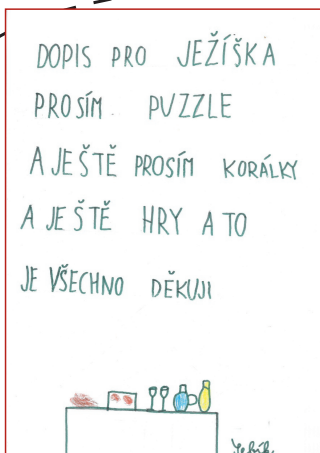 DOPIS PRO JEŽÍŠKA
PROSÍM PUZZLE
A JEŠTĚ PROSÍM KORÁLKY
A JEŠTĚ HRY A TO
JE VŠECHNO DĚKUJI